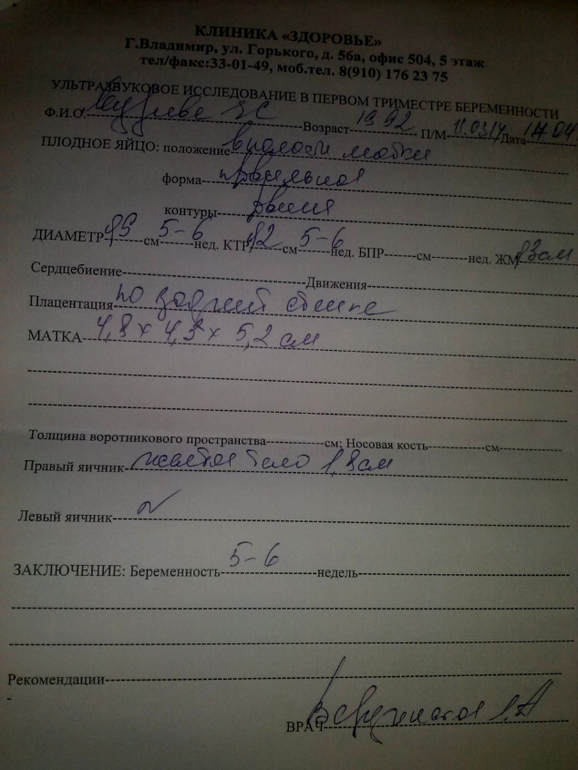 КЛИНИКА «ЗДОРОВЬЕ»
Г.Владимир, ул. Горького, д. 56а, офис 504, 5 этаж
тел/факс:33-01-49, моб.тел. 8(910) 176 23 75
УЛЬТРАЗВУКОВОЕ ИССЛЕДОВАНИЕ В ПЕРВОМ ТРИМЕСТРЕ БЕРЕМЕННОСТИ
Ф.И.О. Возраст 1992 П/М 11.03.14 Дата
ПЛОДНОЕ ЯЙЦО: положение в полости матки
форма правильная
контуры ровные
ДИАМЕТР см 5-6 нед. КТР см 5-6 нед. БПР см нед. ЖМ см
Сердцебиение Движения
Плацентация по задней стенке
МАТКА 4,8 х 4,3 х 5,2 см
Толщина воротникового пространства см; Носовая кость см
Правый яичник желтое тело 1,8 см
Левый яичник N
ЗАКЛЮЧЕНИЕ: Беременность 5-6 недель
Рекомендации
ВРАЧ